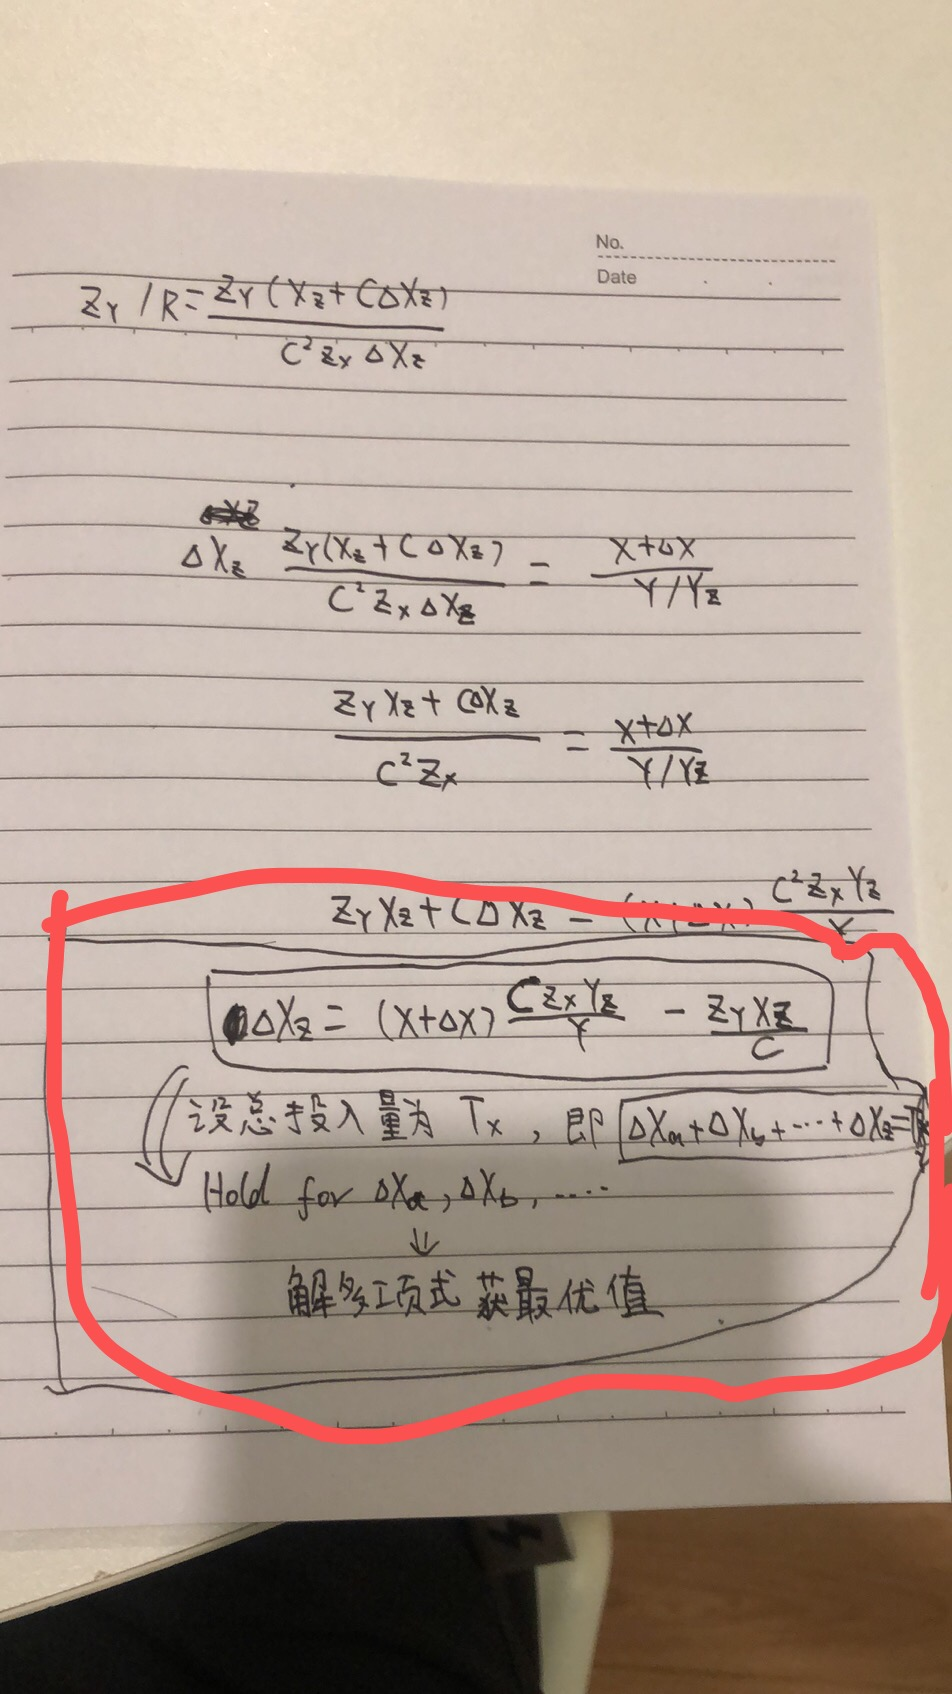 No.
Date
Z_Y / R = Z_Y (X_Z + C∆X_Z) / C² Z_X ∆X_Z
∆X_Z Z_Y (X_Z + C∆X_Z) / C² Z_X ∆X_Z = X+∆X / Y/Y_Z
Z_Y X_Z + C∆X_Z / C² Z_X = X+∆X / Y/Y_Z
Z_Y X_Z + C∆X_Z = (X+∆X) C² Z_X Y_Z / Y
∆X_Z = (X+∆X) C Z_X Y_Z / Y - Z_Y X_Z / C
设总投入量为 T_X , 即 ∆X_a+∆X_b+…+∆X_Z=T_X
Hold for ∆X_a, ∆X_b, ....
↓
解多项式 获最优值